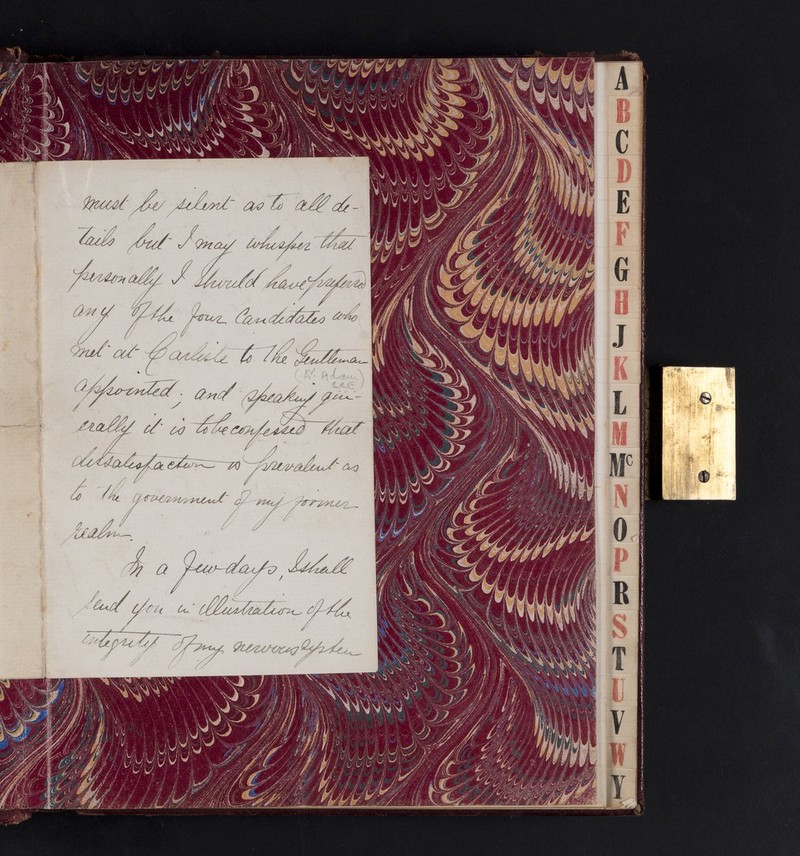 must be silent as to all de-
tails but I may whisper that
personally I should have preferred
any of the four Candidates who
met at Carlisle to the Gentleman
appointed; and speaking gen-
erally it is to be confessed that
dissatisfaction is prevalent as
to the government of my former
realm.
In a few days, I shall
send you in illustration of the
integrity of my nervous system
A
B
C
D
E
F
G
H
J
K
L
M
Mc
N
O
P
R
S
T
U
V
W
Y